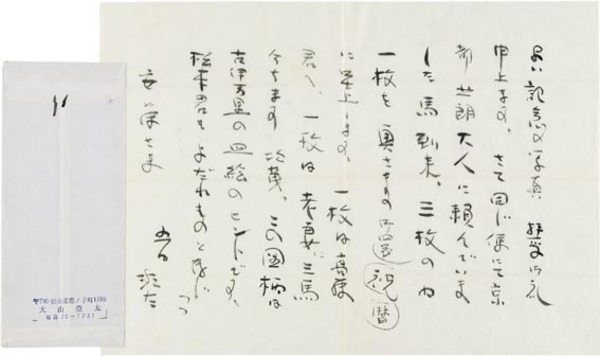 よい記念の写真 拝受 御礼
申上ます。さて同じ便にて京
都 朗 大人に頼んでいま
した馬到来。三枚の
一枚を奥さまの 祝 暦
に呈上します。一枚は高
君へ、一枚は老妻に三馬
分ちます この図柄は
古伊万里の皿絵のヒントです。
松本君もよだれものと存じつつ
さま
〒790 松山市
大山澄太
電話 21-1241